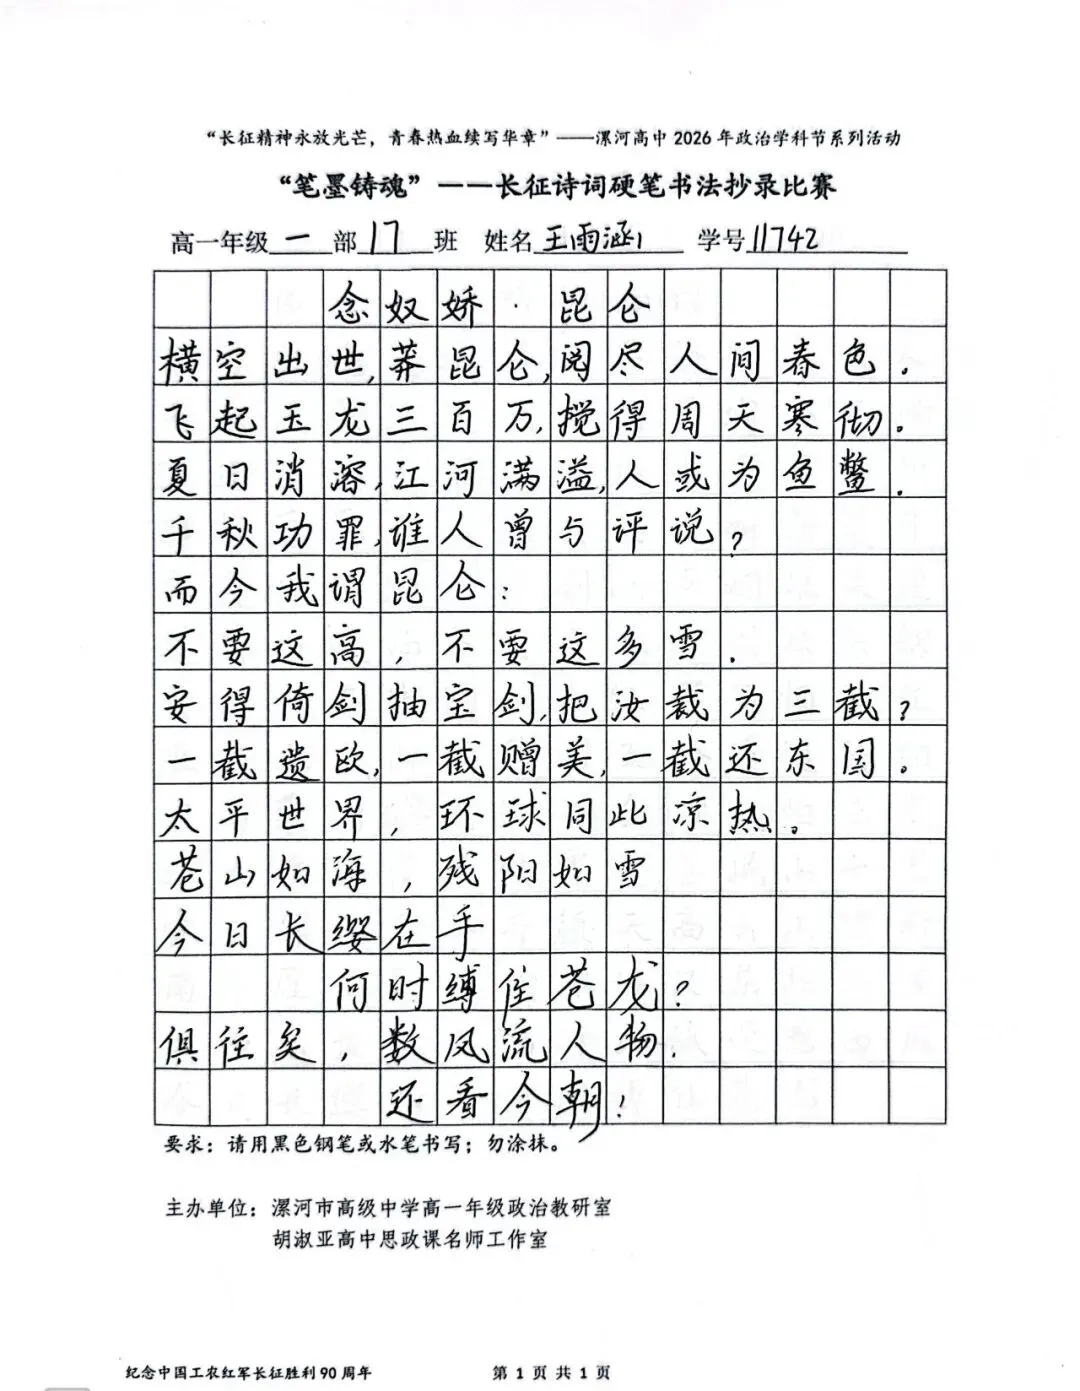 “长征精神永放光芒，青春热血续写华章”——漯河高中 2026 年政治学科节系列活动
“笔墨铸魂”——长征诗词硬笔书法抄录比赛
高一年级 一 部 17 班 姓名 王雨涵 学号 11742
念奴娇·昆仑
横空出世，莽昆仑，阅尽人间春色．
飞起玉龙三百万，搅得周天寒彻。
夏日消溶，江河满溢，人或为鱼鳖．
千秋功罪，谁人曾与评说？
而今我谓昆仑：
不要这高，不要这多雪．
安得倚剑抽宝剑，把汝裁为三截？
一截遗欧，一截赠美，一截还东国。
太平世界，环球同此凉热。
苍山如海，残阳如雪
今日长缨在手
何时缚住苍龙？
俱往矣，数风流人物．
还看今朝！
要求：请用黑色钢笔或水笔书写；勿涂抹。
主办单位：漯河市高级中学高一年级政治教研室
胡淑亚高中思政课名师工作室
纪念中国工农红军长征胜利 90 周年 第 1 页 共 1 页